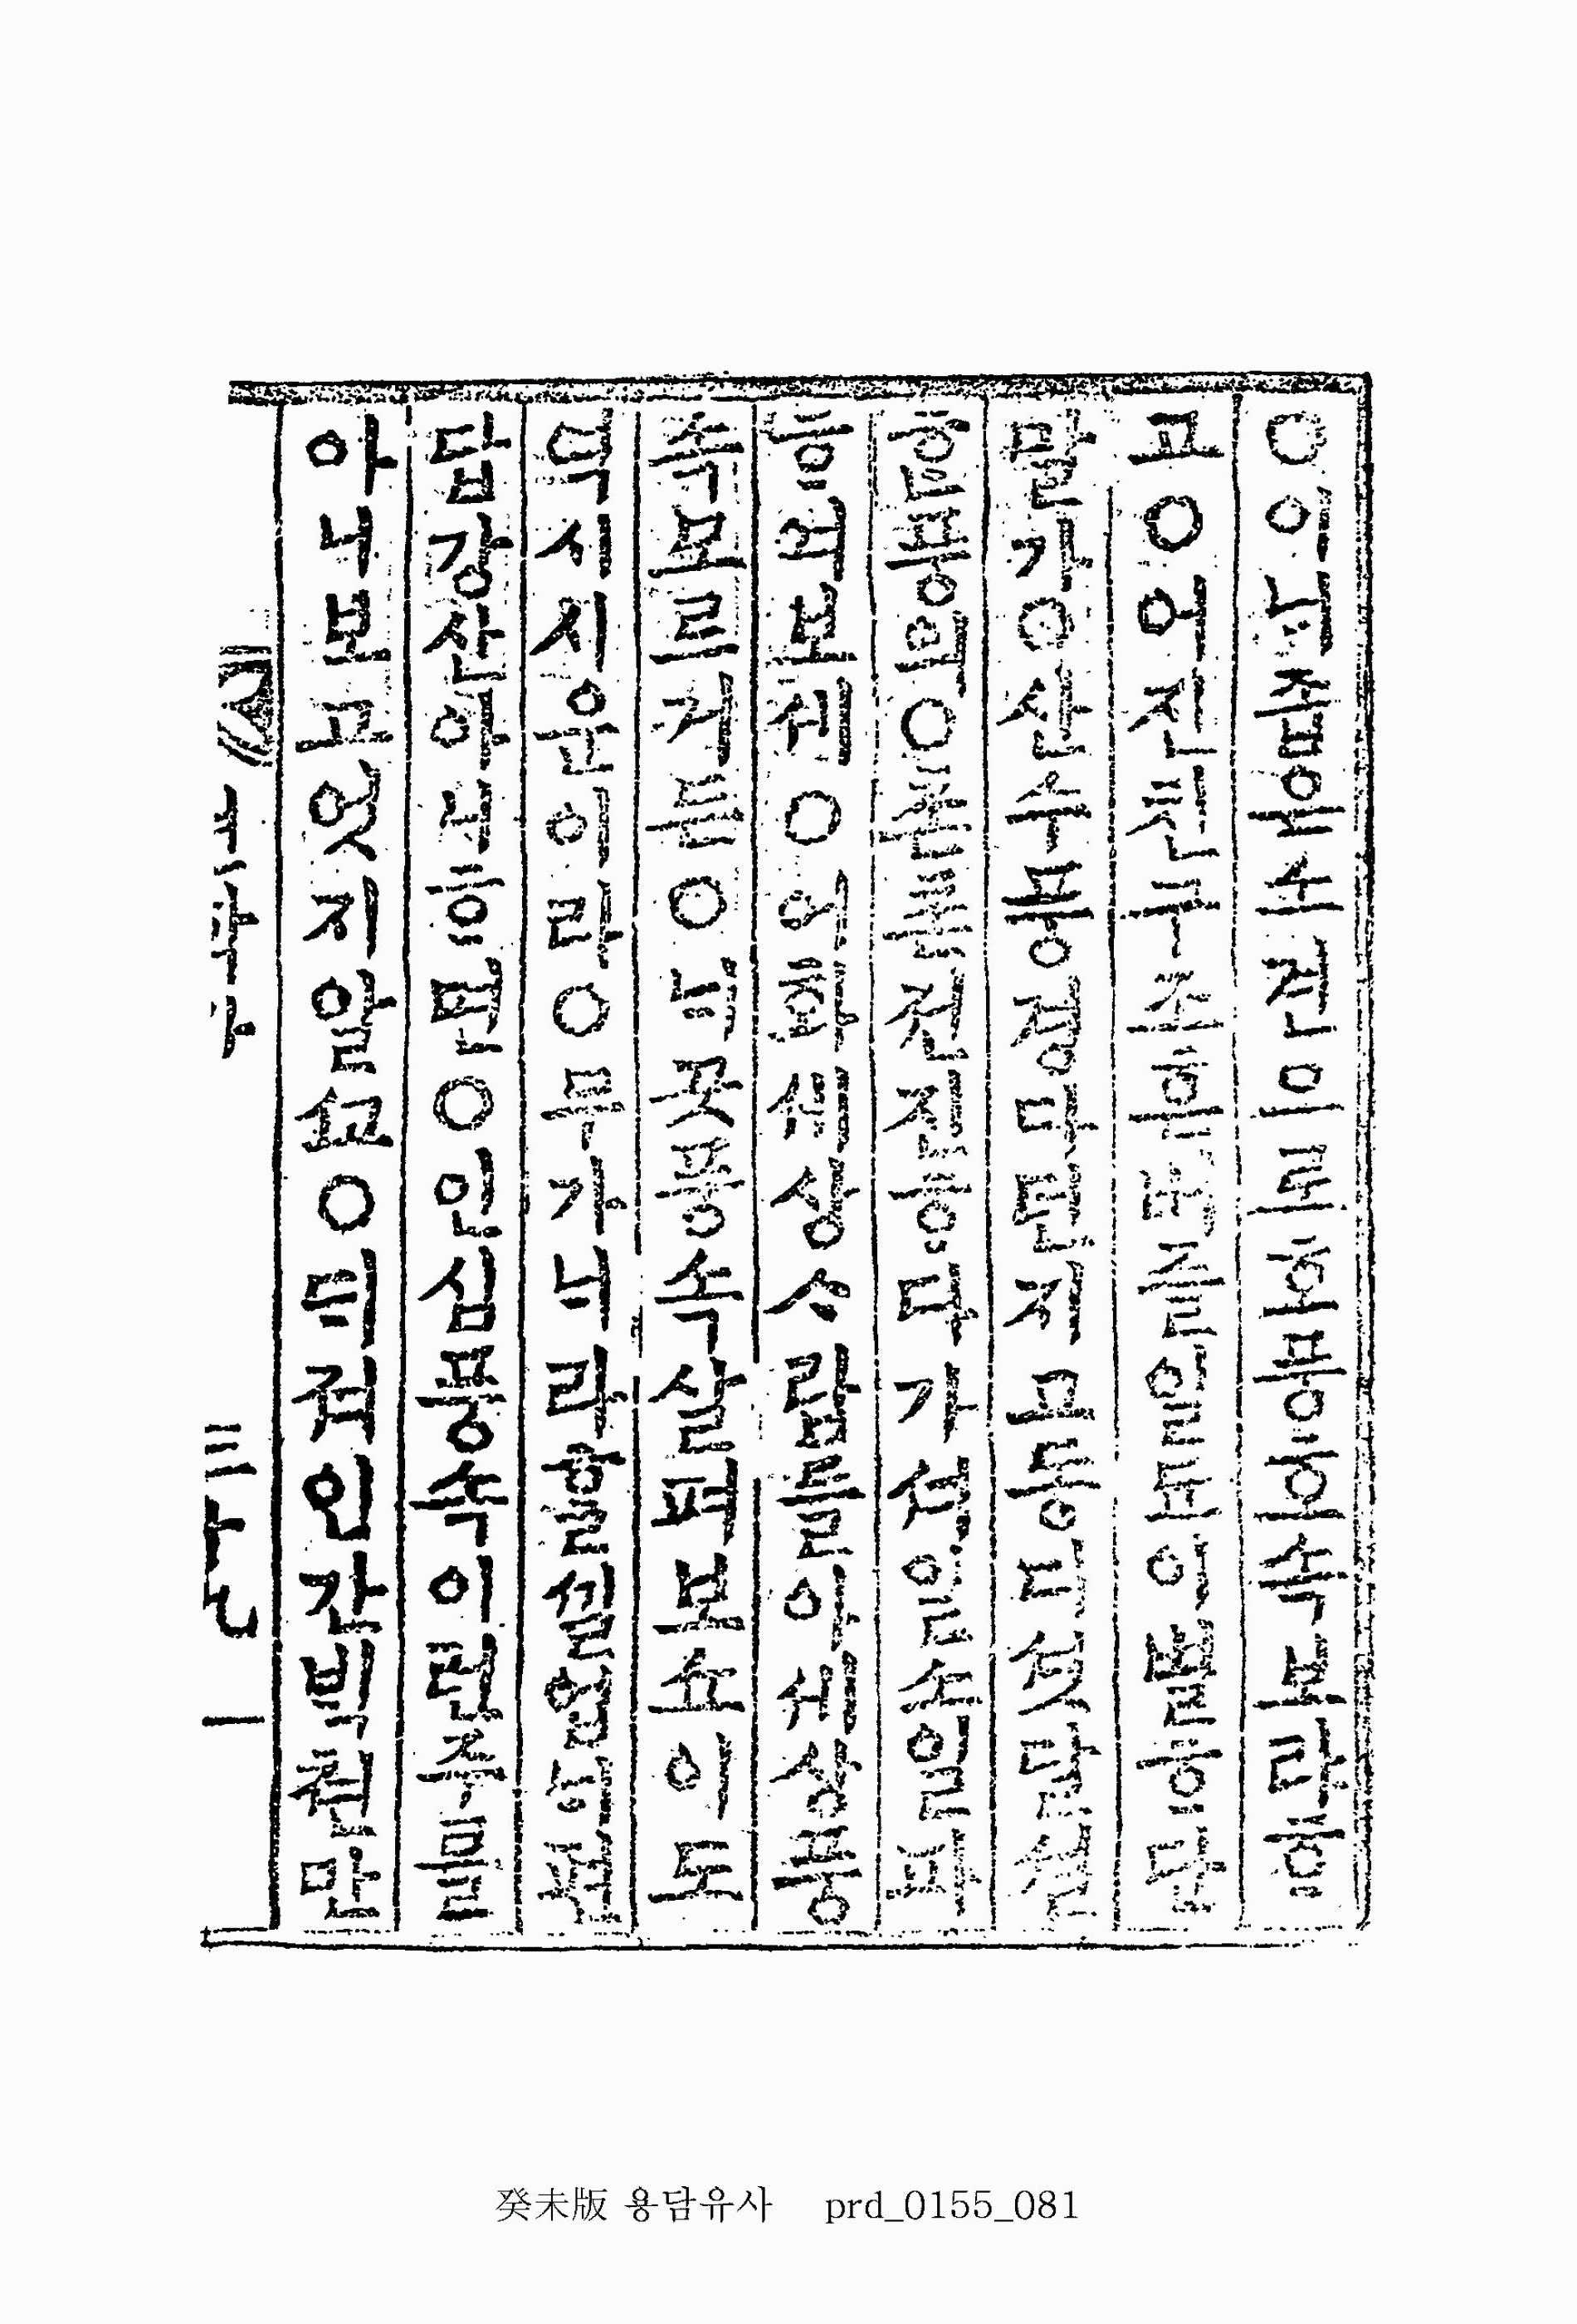 ○이ᄂᆡ좁은소견으로호풍호속보랴ᄒᆞ
고○어진친구조흔벗즐일됴이별ᄒᆞ단
말가○산슈풍경다던지고동디섯달셜
ᄒᆞᆫ풍의○촌촌젼진ᄒᆞ다가셔일소일파
ᄒᆞ여보셰○어화셰상ᄉᆞ람들아셰상풍
속모르거든○ᄂᆡ곳풍속살펴보쇼이도
역시시운이라○무가ᄂᆡ라ᄒᆞᆯᄭᅵᆯ업ᄂᆡ편
답강산아니ᄒᆞ면○인심풍속이런쥬를
아니보고엇지알ᄭᅩ○ᄃᆡ져인간ᄇᆡᆨ쳔만
癸未版 용담유사 prd_0155_081